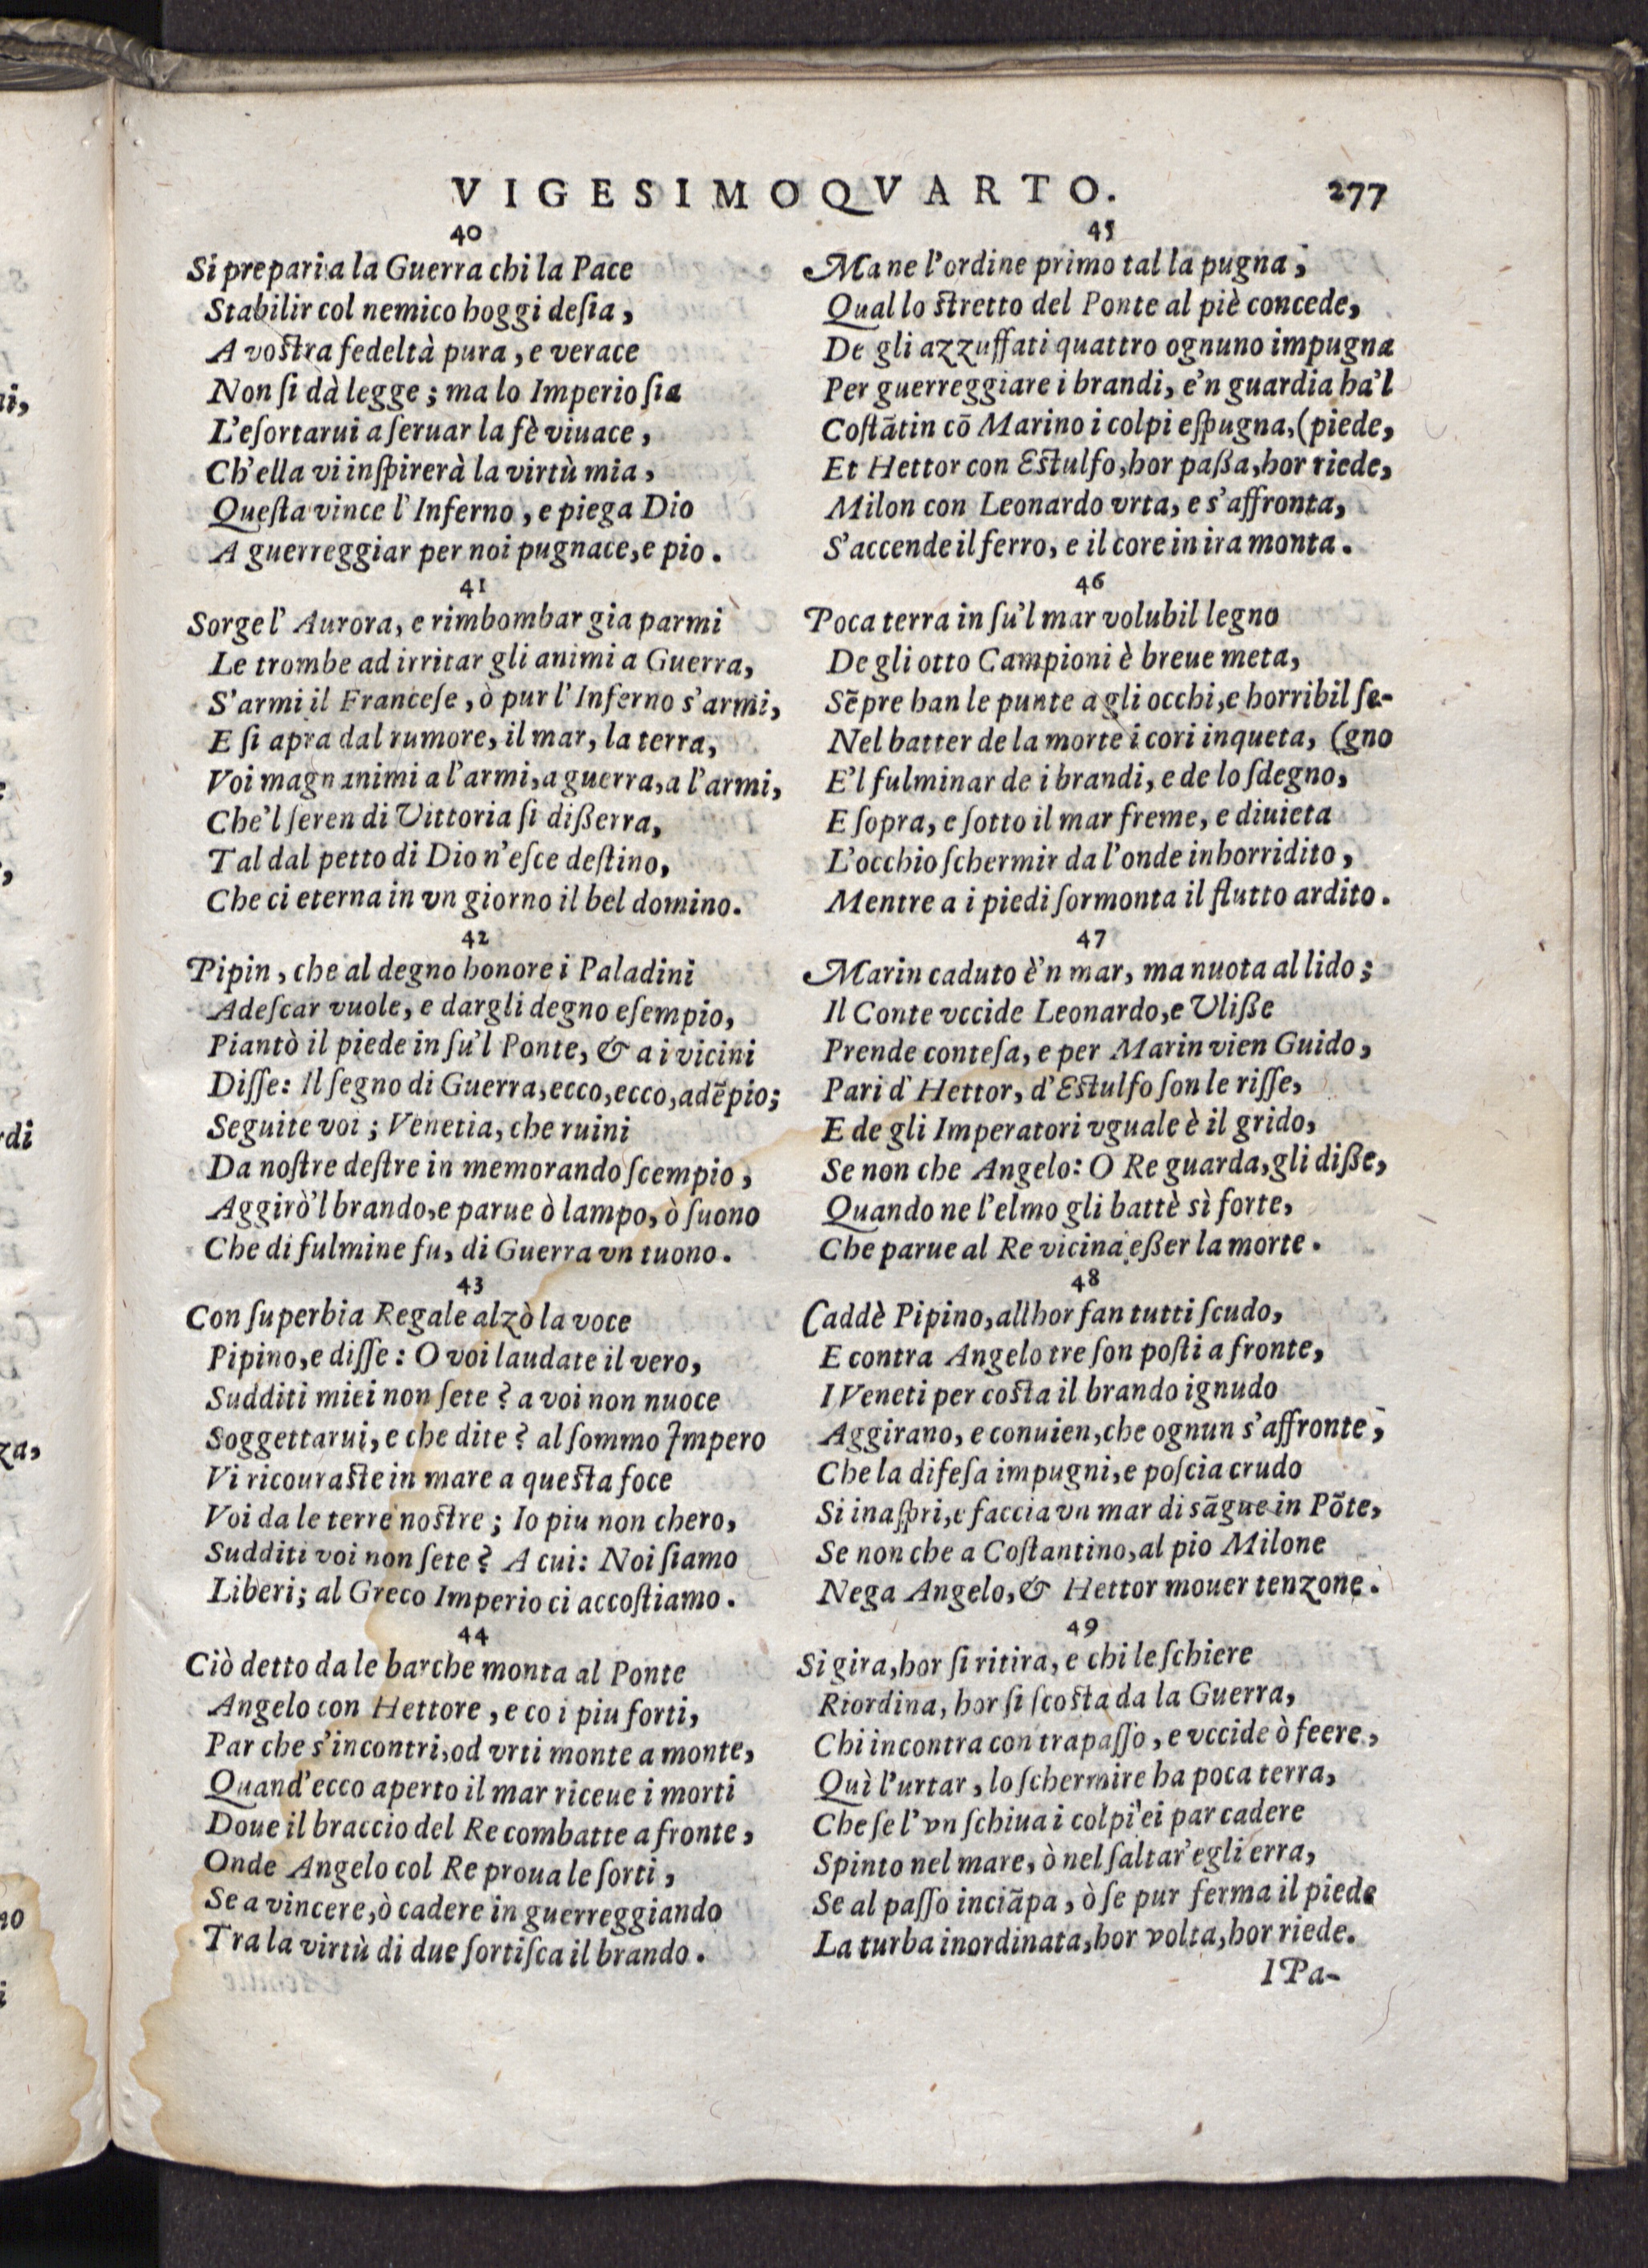 VIGESIMOQVARTO. 277
40
Si prepari a la Guerra chi la Pace
Stabilir col nemico hoggi deſia,
A voſtra fedeltà pura, e verace
Non ſi dà legge; ma lo Imperio ſia
L'eſortarui a ſeruar la fè viuace,
Ch'ella vi inſpirerà la virtù mia,
Queſta vince l'Inferno, e piega Dio
A guerreggiar per noi pugnace, e pio.
41
Sorge l'Aurora, e rimbombar gia parmi
Le trombe ad irritar gli animi a Guerra,
S'armi il Franceſe, ò pur l'Inferno s'armi,
E ſi apra dal rumore, il mar, la terra,
Voi magnanimi a l'armi, a guerra, a l'armi,
Che'l ſeren di Vittoria ſi diſſerra,
Tal dal petto di Dio n'eſce deſtino,
Che ci eterna in vn giorno il bel domino.
42
Pipin, che al degno honore i Paladini
Adeſcar vuole, e dargli degno eſempio,
Piantò il piede in ſu'l Ponte, & a i vicini
Diſſe: Il ſegno di Guerra, ecco, ecco, adẽpio;
Seguite voi; Venetia, che ruini
Da noſtre deſtre in memorando ſcempio,
Aggirò'l brando, e parue ò lampo, ò ſuono
Che di fulmine fu, di Guerra vn tuono.
43
Con ſuperbia Regale alzò la voce
Pipino, e diſſe: O voi laudate il vero,
Sudditi miei non ſete? a voi non nuoce
Soggettarui, e che dite? al ſommo Impero
Vi ricouraſte in mare a queſta foce
Voi da le terre noſtre; Io piu non chero,
Sudditi voi non ſete? A cui: Noi ſiamo
Liberi; al Greco Imperio ci accoſtiamo.
44
Ciò detto da le barche monta al Ponte
Angelo con Hettore, e co i piu forti,
Par che s'incontri, od vrti monte a monte,
Quand'ecco aperto il mar riceue i morti
Doue il braccio del Re combatte a fronte,
Onde Angelo col Re proua le ſorti,
Se a vincere, ò cadere in guerreggiando
Tra la virtù di due ſortiſca il brando.
45
Ma ne l'ordine primo tal la pugna,
Qual lo ſtretto del Ponte al piè concede,
De gli azzuffati quattro ognuno impugna
Per guerreggiare i brandi, e'n guardia ha'l
Coſtãtin cõ Marino i colpi eſpugna, (piede,
Et Hettor con Eſtulfo, hor paſſa, hor riede,
Milon con Leonardo vrta, e s'affronta,
S'accende il ferro, e il core in ira monta.
46
Poca terra in ſu'l mar volubil legno
De gli otto Campioni è breue meta,
Sẽpre han le punte a gli occhi, e horribil ſe-
Nel batter de la morte i cori inqueta, (gno
E'l fulminar de i brandi, e de lo ſdegno,
E ſopra, e ſotto il mar freme, e diuieta
L'occhio ſchermir da l'onde inhorridito,
Mentre a i piedi ſormonta il flutto ardito.
47
Marin caduto è'n mar, ma nuota al lido;
Il Conte vccide Leonardo, e Vliſſe
Prende conteſa, e per Marin vien Guido,
Pari d'Hettor, d'Eſtulfo ſon le riſſe,
E de gli Imperatori vguale è il grido,
Se non che Angelo: O Re guarda, gli diſſe,
Quando ne l'elmo gli battè sì forte,
Che parue al Re vicina eſſer la morte.
48
Caddè Pipino, allhor fan tutti ſcudo,
E contra Angelo tre ſon poſti a fronte,
I Veneti per coſta il brando ignudo
Aggirano, e conuien, che ognun s'affronte,
Che la difeſa impugni, e poſcia crudo
Si inaſpri, e faccia vn mar di sãgue in Põte,
Se non che a Coſtantino, al pio Milone
Nega Angelo, & Hettor mouer tenzone.
49
Si gira, hor ſi ritira, e chi le ſchiere
Riordina, hor ſi ſcoſta da la Guerra,
Chi incontra con trapaſſo, e vccide ò feere,
Quì l'urtar, lo ſchermire ha poca terra,
Che ſe l'vn ſchiua i colpi'ei par cadere
Spinto nel mare, ò nel ſaltar'egli erra,
Se al paſſo inciãpa, ò ſe pur ferma il piede
La turba inordinata, hor volta, hor riede.
I Pa-